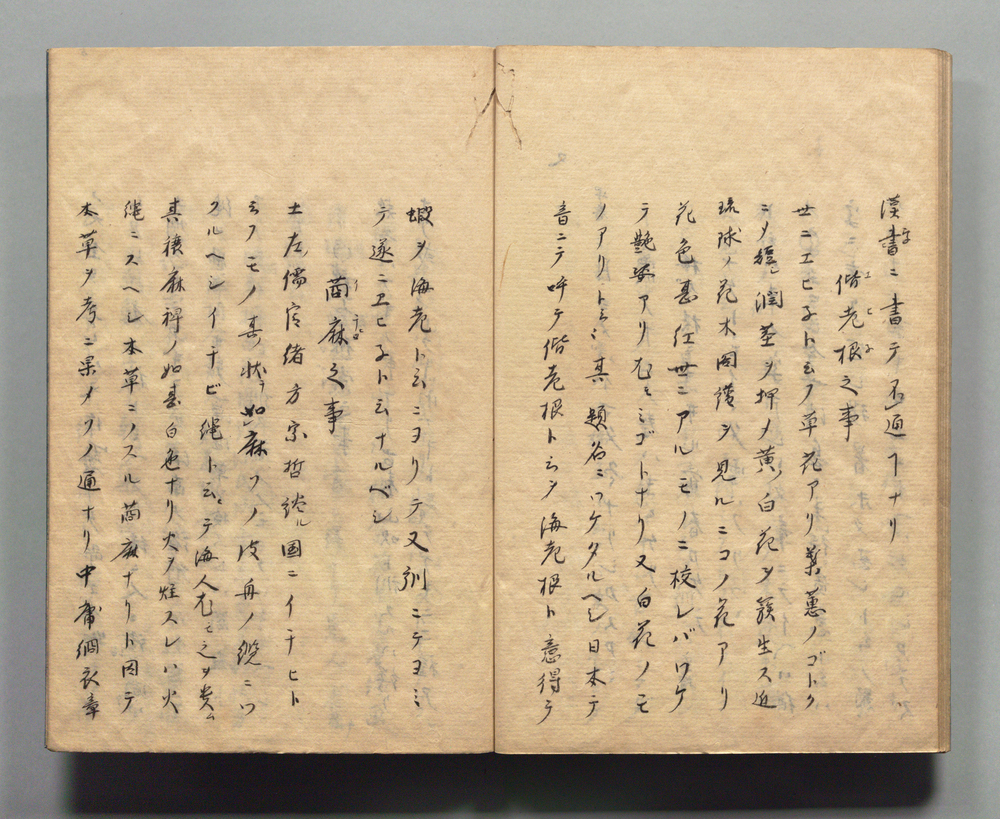 漢書ニ書テ不通ヿナリ
偕老根之事
エビ子
世ニエヒ子ト云フ草花アリ葉蕙ノゴトク
ニメ 潤 茎ヲ押メ黄白花ヲ簇生ス近
琉球ノ花木圖譜ヲ見ルニコノ花アリ
花色甚紅世ニアルモノニ校レバワケ
テ艶姿アリ尤モミゴトナリ又白花ノモ
ノアリト云ヘ其類各ニワケタルヘシ日本テ
音ニテ呼テ偕老根ト云ヲ海老根ト意得テ
蝦ヲ海老ト云ニヨリテ又訓ニテヨミ
テ遂ニヱヒ子ト云ナルベシ
茵麻之事
土左儒官緒方宗哲 國ニイチヒト
云フモノ其状ヲ如麻ソノ皮舟ノ纜ニツ
クルヘシイチビ縄ト云テ海人尤モ之ヲ貴ム
其穣麻稈ノ如甚白色ナリ火ヲ炷スレハ火
縄ニスヘシ本草ニノスル茵麻ナリト因テ
本草ヲ考ニ果メソノ通ナリ中庸絅衣章